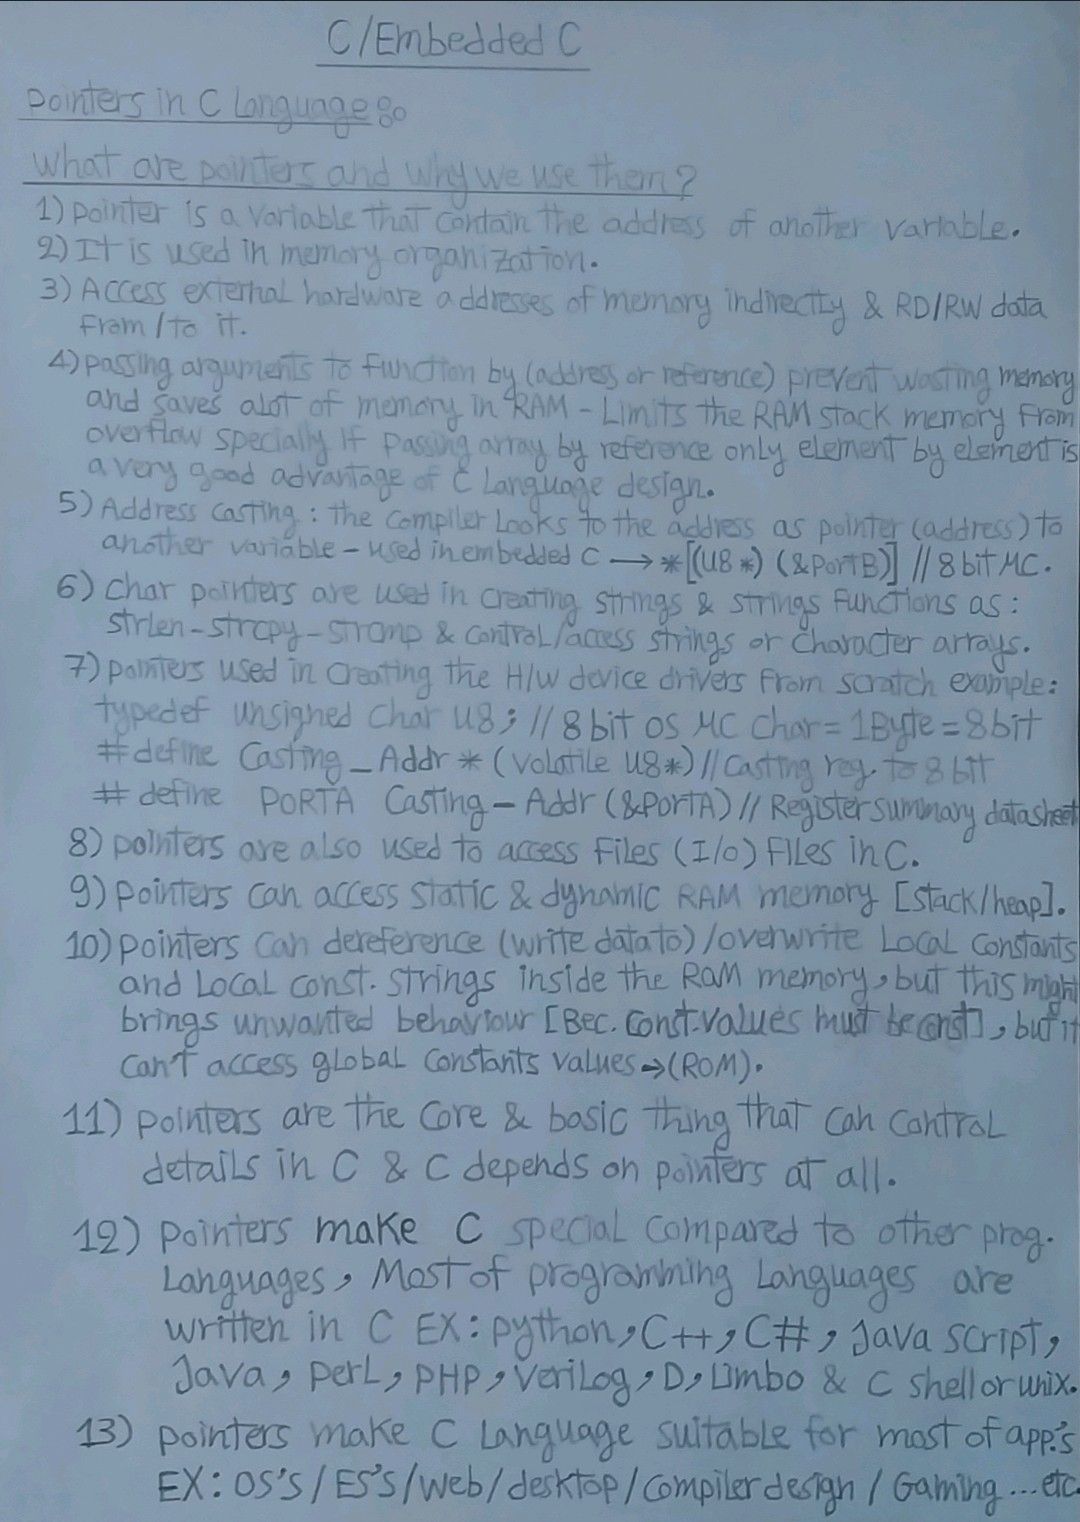 C/Embedded C
Pointers in C Language:
What are pointers and why we use them?
1) Pointer is a variable that contain the address of another variable.
2) It is used in memory organization.
3) Access external hardware addresses of memory indirectly & RD/RW data
From/to it.
4) Passing arguments to function by (address or reference) prevent wasting memory
and saves alot of memory in RAM - Limits the RAM stack memory from
overflow specially if passing array by reference only element by element is
a very good advantage of C Language design.
5) Address casting: the compiler looks to the address as pointer (address) to
another variable - used in embedded C → *[(U8 *) (&PortB)] // 8 bit MC.
6) Char pointers are used in creating strings & strings functions as:
strlen - strcpy - strcmp & control/access strings or character arrays.
7) Pointers used in creating the H/w device drivers from scratch example:
typedef unsigned char U8; // 8 bit OS MC char = 1Byte = 8bit
#define Casting_Addr * (volatile U8*) // casting reg. to 8 bit
#define PORTA Casting-Addr (&PORTA) // Register summary datasheet
8) Pointers are also used to access Files (I/O) Files in C.
9) Pointers can access static & dynamic RAM memory [stack/heap].
10) Pointers can dereference (write data to) /overwrite Local constants
and Local const. strings inside the RAM memory, but this might
brings unwanted behaviour [Bec. const. values must be const], but it
can't access global constants values → (ROM).
11) Pointers are the core & basic thing that can control
details in C & C depends on pointers at all.
12) Pointers make C special compared to other prog.
Languages, Most of programming Languages are
written in C EX: python, C++, C#, Java script,
Java, Perl, PHP, Verilog, D, Limbo & C shell or unix.
13) Pointers make C Language suitable for most of app.'s
EX: OS's / ES's / web / desktop / Compiler design / Gaming ... etc.